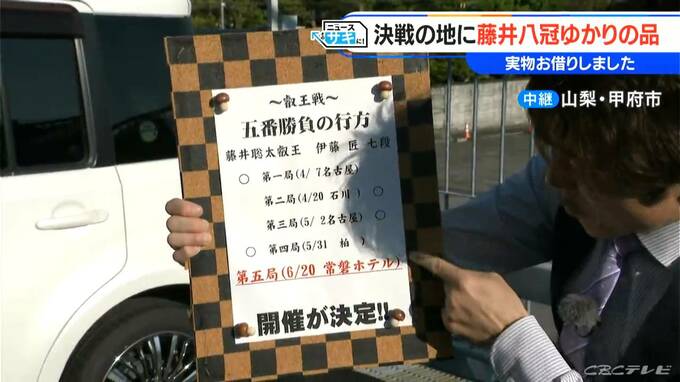 ニュース
サキに!
決戦の地に藤井八冠ゆかりの品
実物お借りしました
中継 山梨・甲府市
～叡王戦～
五番勝負の行方
藤井聡太叡王 伊藤 匠 七段
○ 第一局(4/ 7名古屋)
第二局(4/20 石川 ) ○
第三局(5/ 2名古屋) ○
○ 第四局(5/31 柏 )
第五局(6/20 常磐ホテル)
開催が決定!!
CBCテレビ